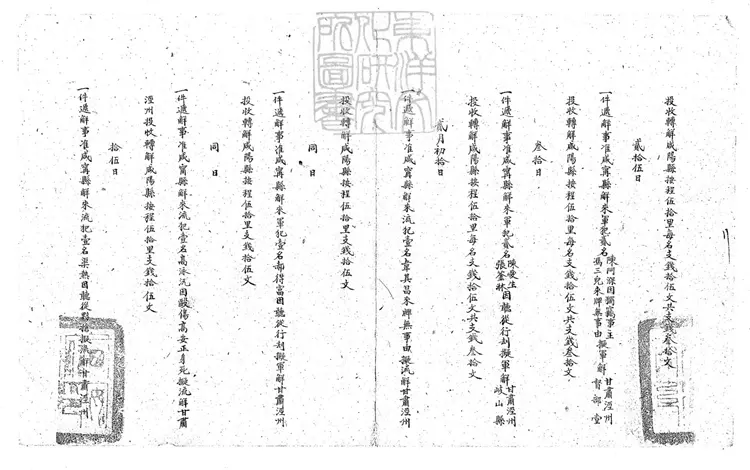 投收轉解咸陽縣按程伍拾里每名支錢拾伍文共支錢叁拾文
貳拾伍日
一件遞解事准咸寧縣解來軍犯貳名
陳阿深因竊事主
馮三兒來牌無事由
擬軍解
甘肅涇州
督部堂
投收轉解咸陽縣按程伍拾里每名支錢拾伍文共支錢叁拾文
叁拾日
一件遞解事准咸寧縣解來軍犯貳名
陳愛生
張
因聽從行刮擬軍解
甘肅涇州
岐山縣
投收轉解咸陽縣按程伍拾里每名支錢拾伍文共支錢叁拾文
貳月初拾日
一件遞解事准咸寧縣解來流犯壹名韋其昌來牌無事由擬流解甘肅涇州
投收轉解咸陽縣按程伍拾里支錢拾伍文
同日
一件遞解事准咸寧縣解來軍犯壹名郝得富因聽從行刮擬軍解甘肅涇州
投收轉解咸陽縣按程伍拾里支錢拾伍文
同日
一件遞解事准咸寧縣解來流犯壹名高泳沅因毆傷高安正身死擬流解甘肅
涇州投收轉解咸陽縣按程伍拾里支錢拾伍文
拾伍日
一件遞解事准咸寧縣解來流犯壹名渠熱因聽從擬流解甘肅涇州
東洋文化研究所圖書